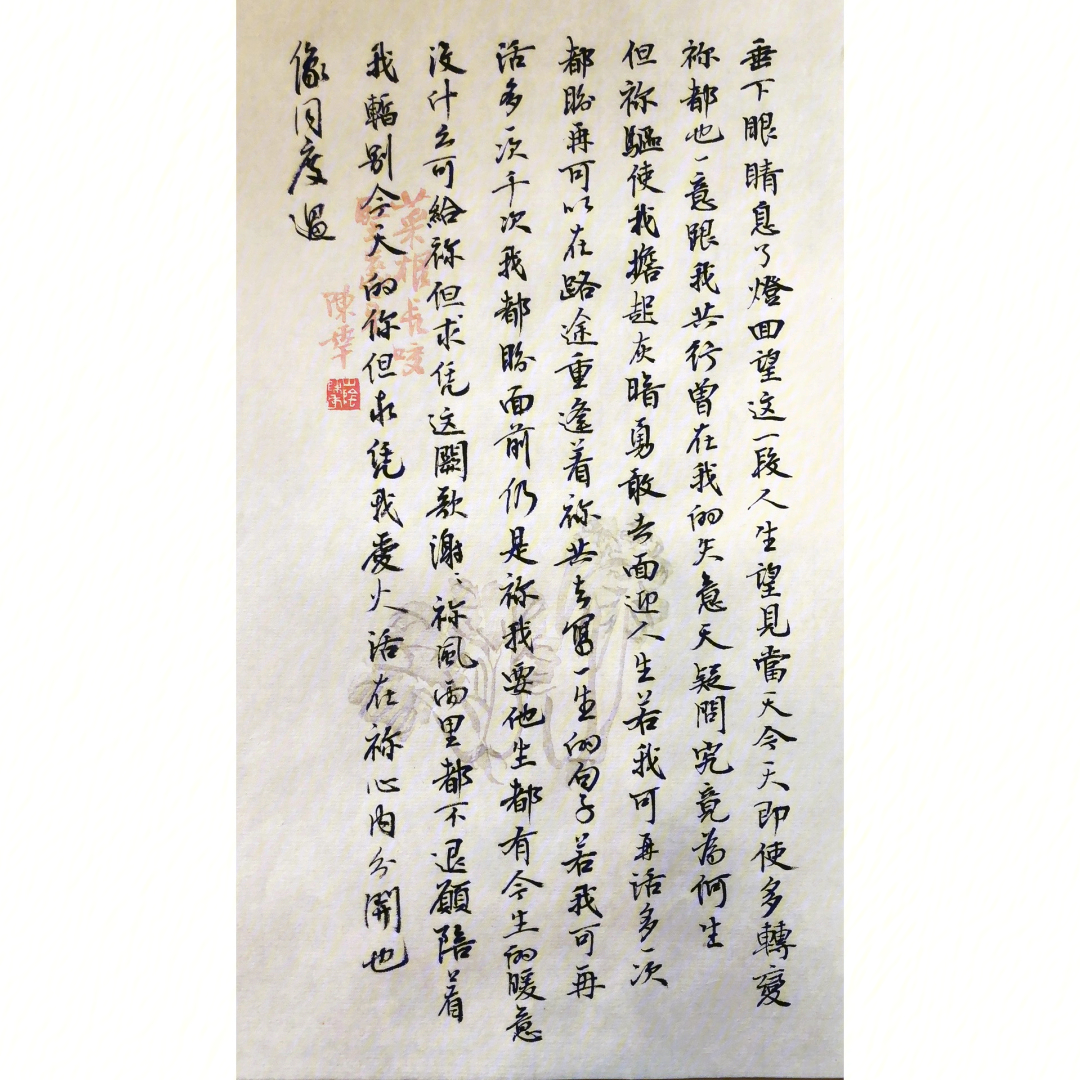 垂下眼睛息了燈回望这一段人生望見當天今天即使多轉變
祢都也一意跟我共行曾在我的失意天疑問究竟為何生
但祢驅使我擔起灰暗勇敢去面迎人生若我可再活多一次
都盼再可以在路途重逢着祢共去寫一生的句子若我可再
活多一次千次我都盼面前仍是祢我要他生都有今生的暖意
没什么可給祢但求凭这闋歌谢〻祢風雨里都不退願陪着
我暫别今天的你但求凭我愛火活在祢心内分開也
像同度過
菜根長咬
陳葦